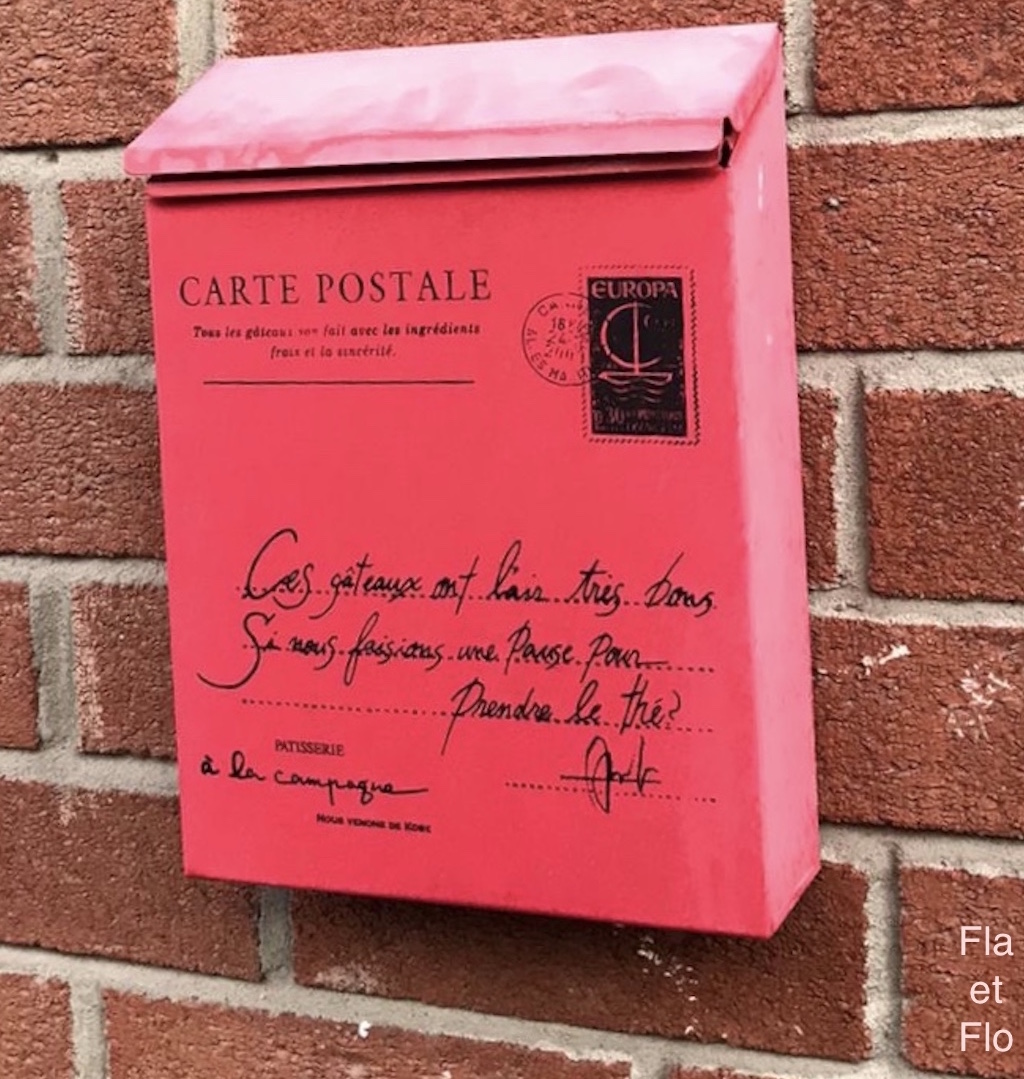 CARTE POSTALE
Tous les gâteaux son fait avec les ingrédients
frais et la sincérité.
EUROPA
0,30
Ces gâteaux ont l'air très bons
Si nous faisions une Pause Pour
Prendre le thé?
PATISSERIE
à la campagne
NOUS VENONS DE KOBE
Fla
et
Flo